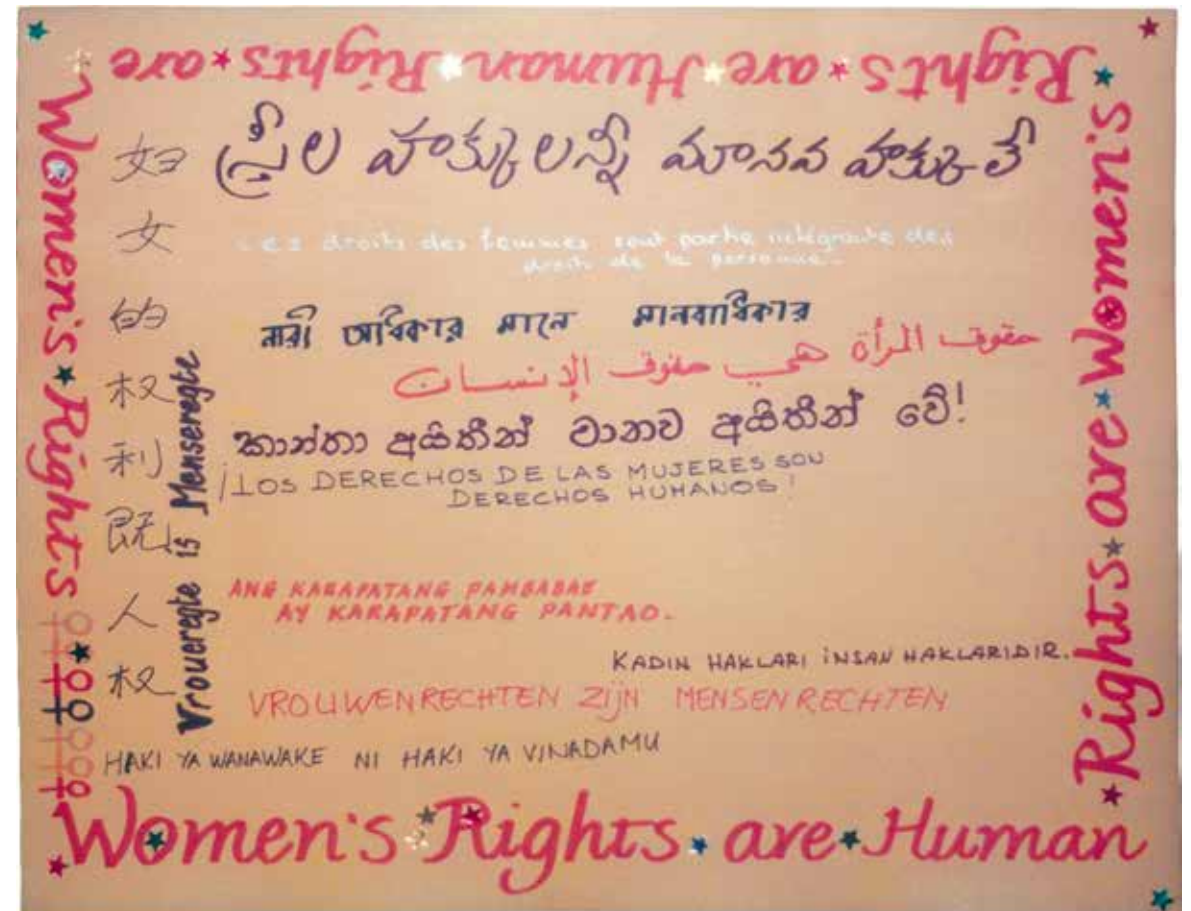 Women's Rights are Human
Rights are Women's
Rights are Human Rights are
Women's Rights
స్త్రీల హక్కులన్నీ మానవ హక్కులే
Les droits des femmes sont partie intégrante des
droits de la personne.
নারী অধিকার মানে মানবাধিকার
حقوق المرأة هي حقوق الإنسان
කාන්තා අයිතීන් මානව අයිතීන් වේ!
¡LOS DERECHOS DE LAS MUJERES SON
DERECHOS HUMANOS!
ANG KARAPATANG PAMBABAE
AY KARAPATANG PANTAO.
KADIN HAKLARI İNSAN HAKLARIDIR.
VROUWENRECHTEN ZIJN MENSENRECHTEN
HAKI YA WANAWAKE NI HAKI YA VINADAMU
妇女的权利既人权
Vroueregte is Menseregte